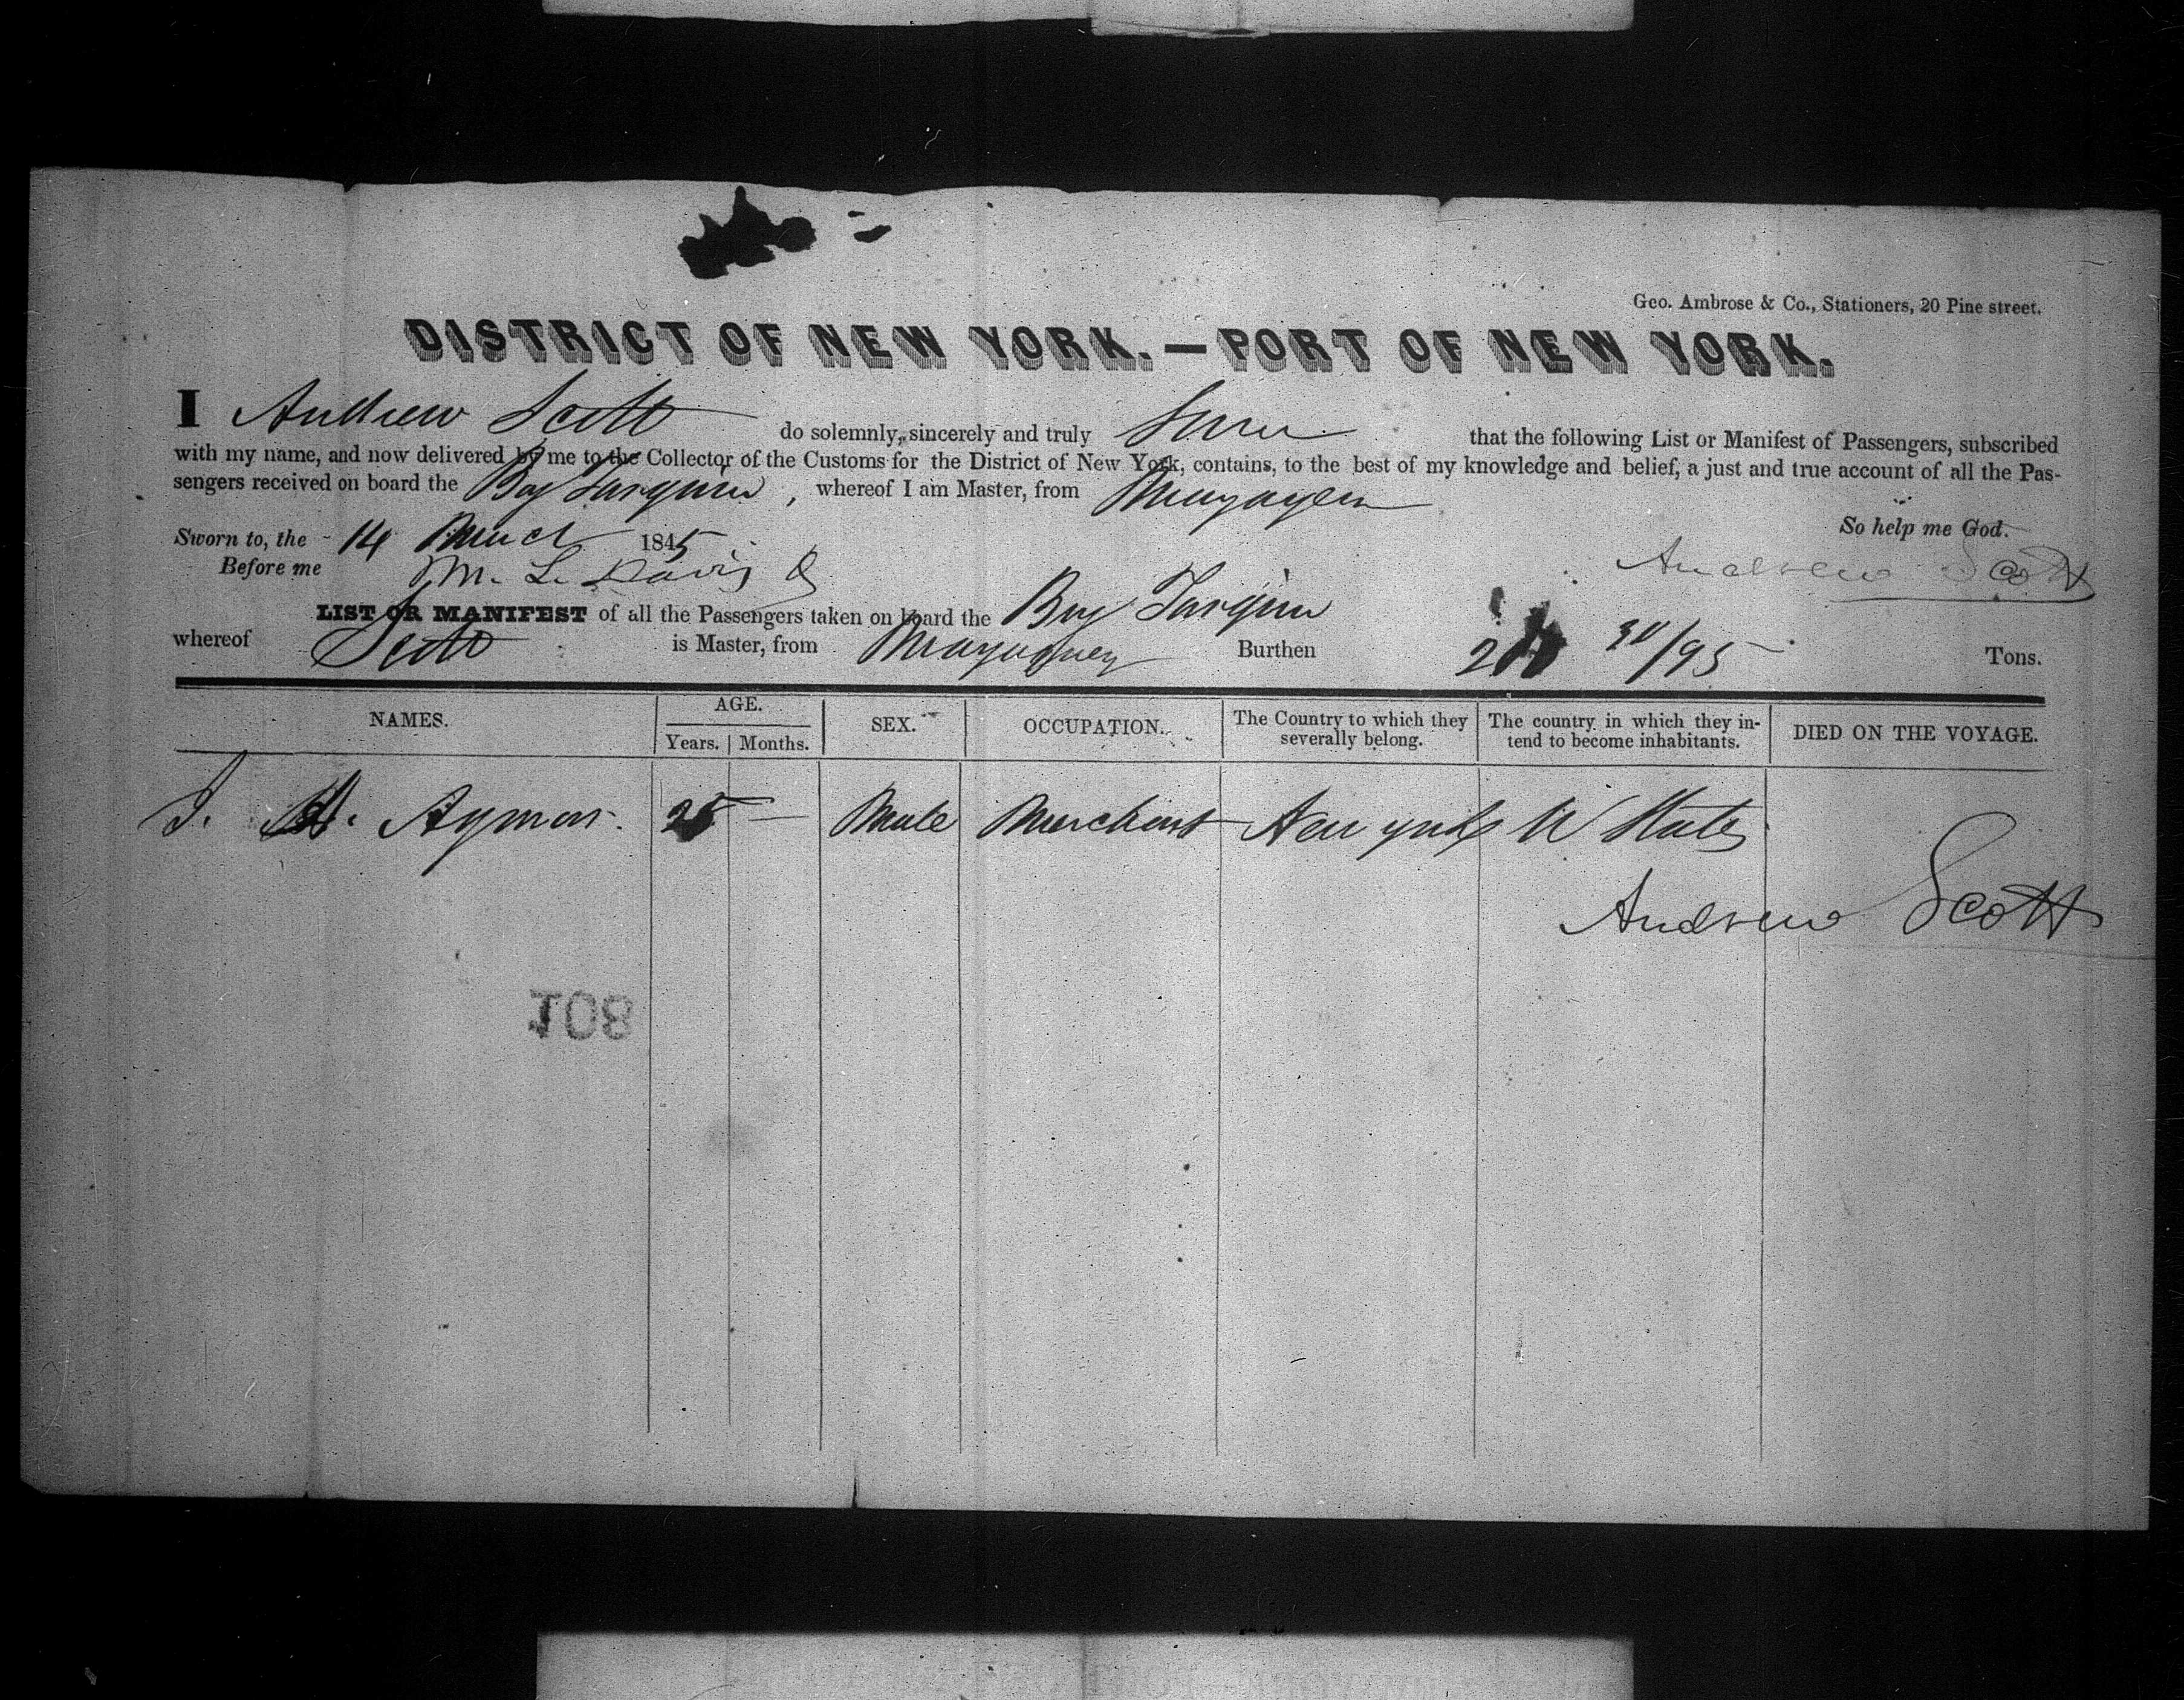 Geo. Ambrose & Co., Stationers, 20 Pine street.
DISTRICT OF NEW YORK.—PORT OF NEW YORK.
I Andrew Scott do solemnly, sincerely and truly Swear that the following List or Manifest of Passengers, subscribed
with my name, and now delivered by me to the Collector of the Customs for the District of New York, contains, to the best of my knowledge and belief, a just and true account of all the Pas-
sengers received on board the Brig Tarquin, whereof I am Master, from Mayaguez
So help me God.
Sworn to, the 14 March 1845
Before me M. L. Davis
Andrew Scott
LIST OR MANIFEST of all the Passengers taken on board the Brig Tarquin
whereof Scott is Master, from Mayaguez Burthen /95 Tons.
NAMES. AGE. SEX. OCCUPATION. The Country to which they severally belong. The country in which they in-tend to become inhabitants. DIED ON THE VOYAGE.
Years. Months.
Aymar. 25 — Male Merchant New York U States
Andrew Scott
108